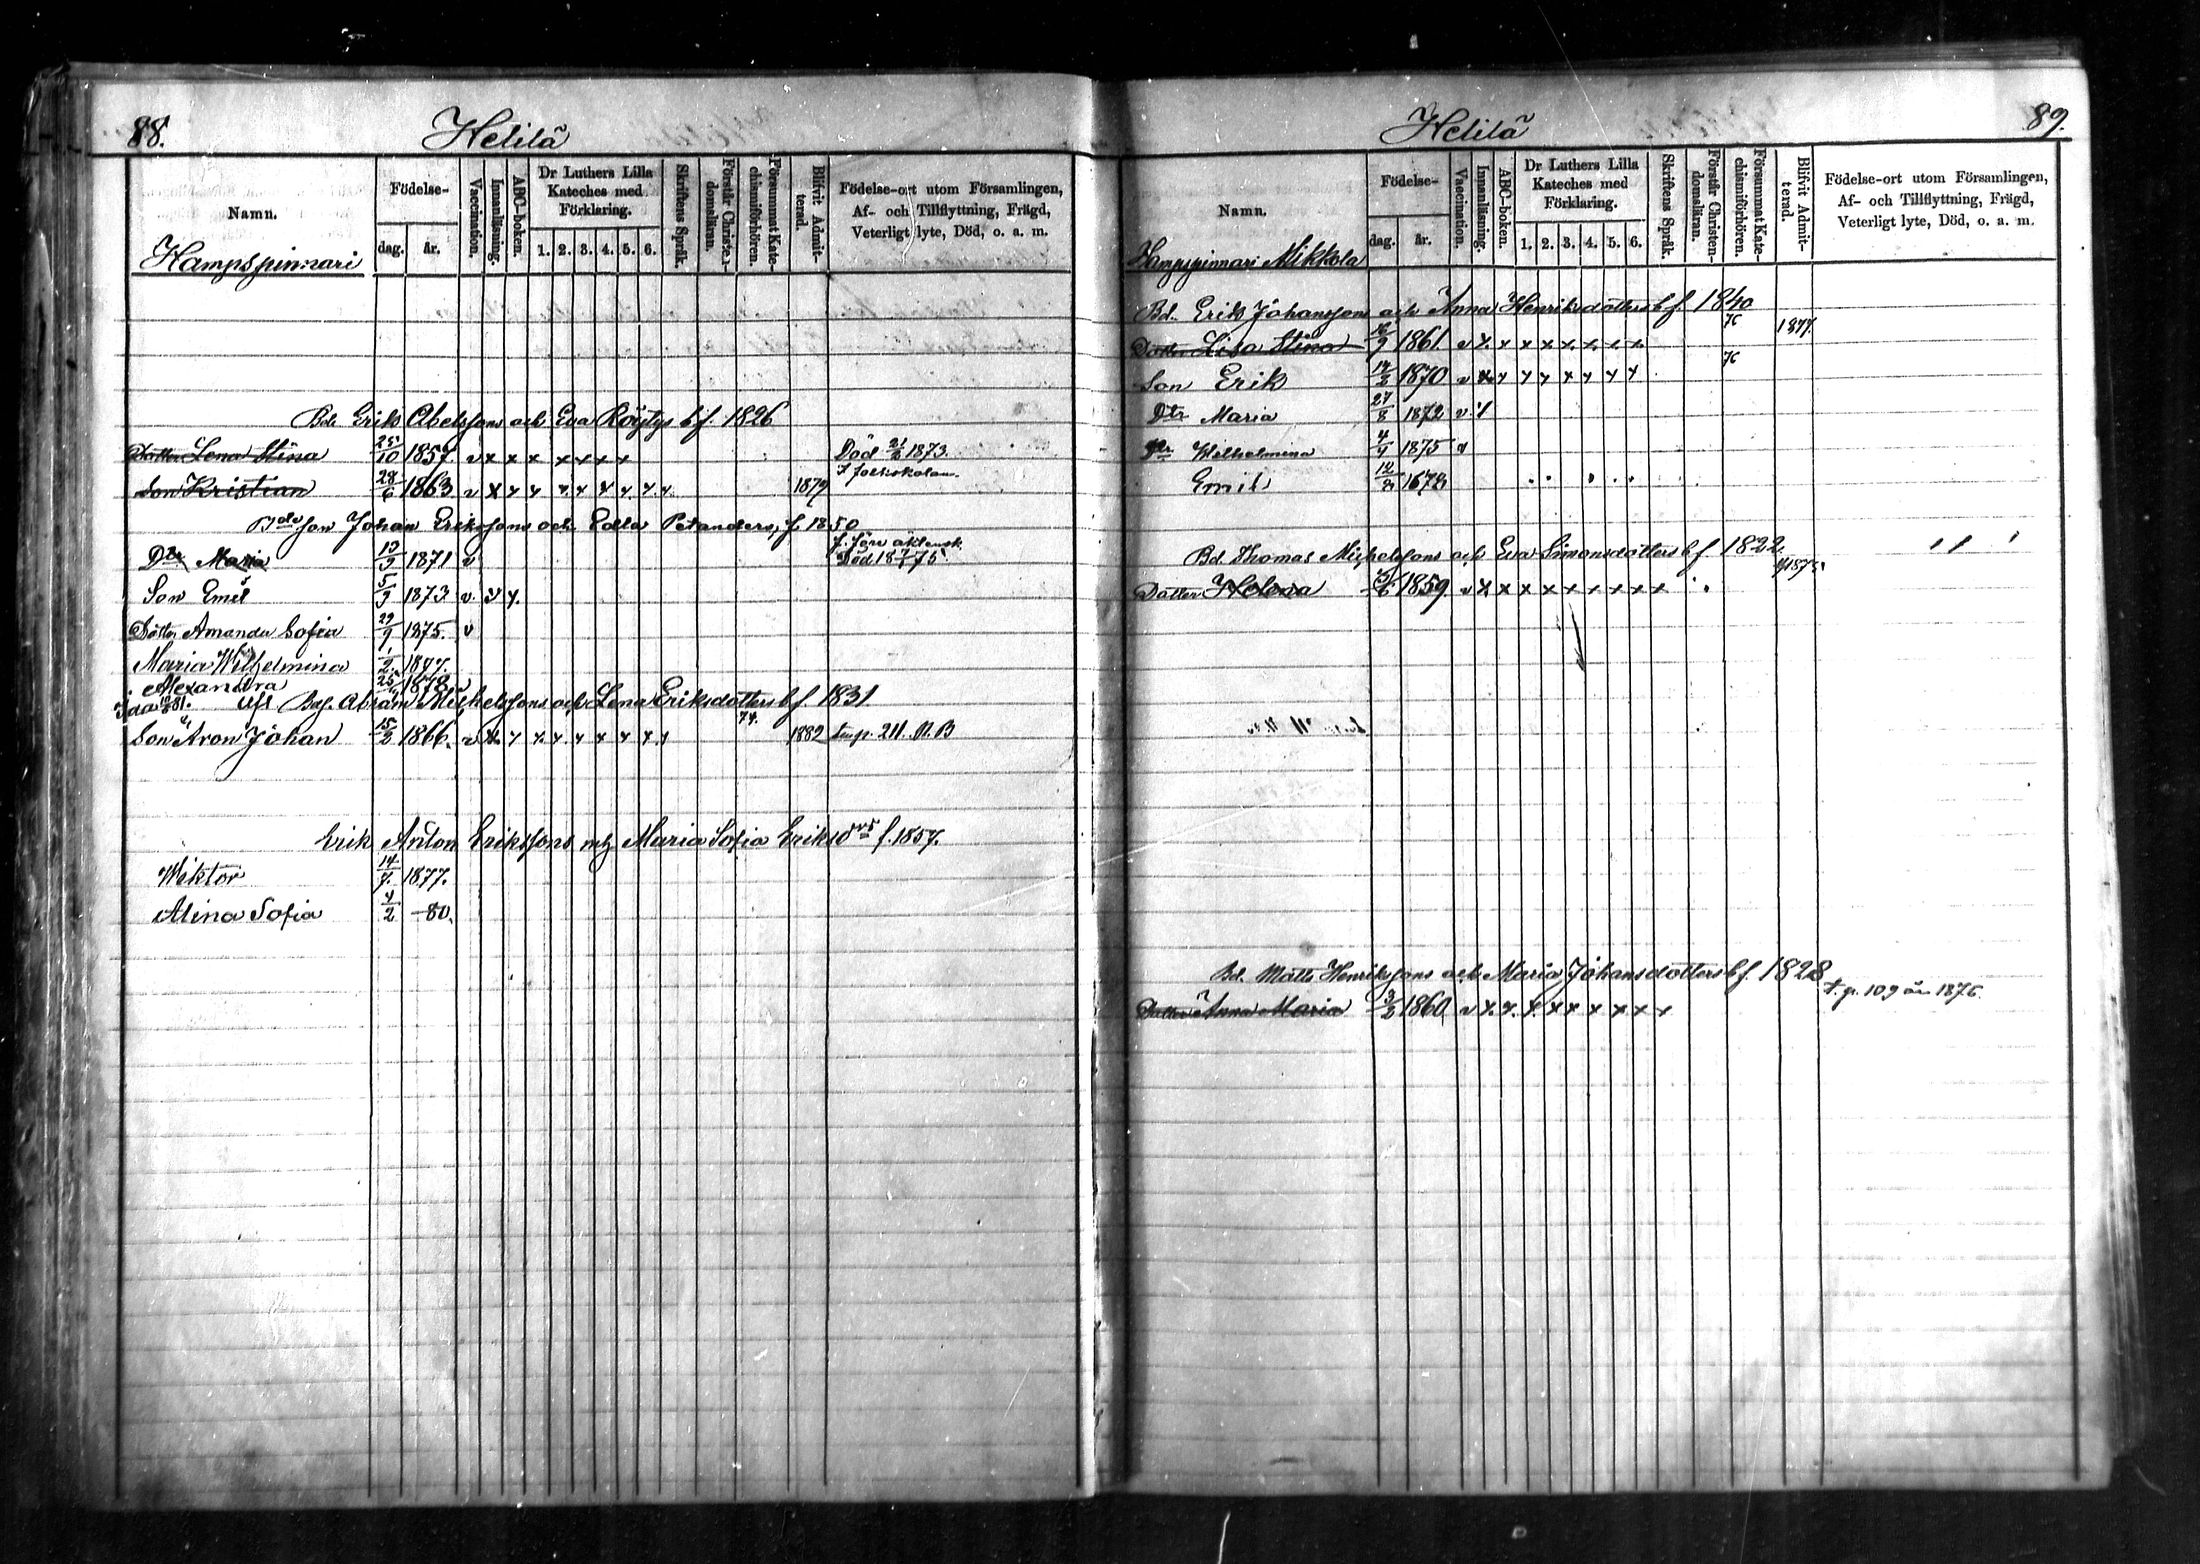 88.
Helilä
Namn.
Födelse-
dag.
år.
Vaccination.
Innanläsning.
ABC-boken.
Dr Luthers Lilla Kateches med Förklaring.
1. 2. 3. 4. 5. 6.
Skriftens Språk.
Förstår Christendomsläran.
Försummat Katechismiförhören.
Blifvit Admitterad.
Födelse-ort utom Församlingen,
Af- och Tillflyttning, Frägd,
Veterligt lyte, Död, o. a. m.
Hampspinnari
Bde Erik Abelssons och Eva Röytys b f. 1826
Dotter Lena Stina 25/10 1857. v x x x x x x x Död 21/2 1873.
I folkskolan
Son Kristian 28/6 1863 v x x x x x x x x x 1879
Bdeson Johan Erikssons och Edla Petanders, f. 1850
Dtr Maria 13/9 1871 v Död 18 7/7 75.
Son Emil 5/9 1873 v. v x.
Dotter Amanda Sofia 29/9 1875. v
Maria Wilhelmina 1/2 1877.
Alexandra 1878
Ida
Bdf. Abram Michelssons och Lena Eriksdotters b f. 1831.
74.
Son Aron Johan 15/2 1866. v x x x x x x x x x 1882
Erik Anton Erikssons Maria Sofia f. 1857.
Wiktor 14/7. 1877.
Alina Sofia 4/2 -80.
89.
Helilä
Namn.
Födelse-
dag.
år.
Vaccination.
Innanläsning.
ABC-boken.
Dr Luthers Lilla Kateches med Förklaring.
1. 2. 3. 4. 5. 6.
Skriftens Språk.
Förstår Christendomsläran.
Försummat Katechismiförhören.
Blifvit Admitterad.
Födelse-ort utom Församlingen,
Af- och Tillflyttning, Frägd,
Veterligt lyte, Död, o. a. m.
Hampspinnari Mikkola
Bd. Erik Johanssons och Anna Henriksdotters b f. 1840
Dotter Lisa Stina 16/9 1861. v x. x x x x x x x 76 1877.
Son Erik 1870 v x x x x x x x x 76
Dtr Maria 27/8 1872 v
Dtr Wilhelmina 4/4 1875 v
Emil
Bd. Thomas Michelssons och Eva Simonsdotters b f 1822.
Dotter Helena 1859 v x x x x x x x x x 1875.
Bd. Matts Henrikssons och Maria Johansdotters b f. 1828
Dotter Anna Maria 3/2 1860 v x. x. x. x x x x x x t. p. 109 år 1876.